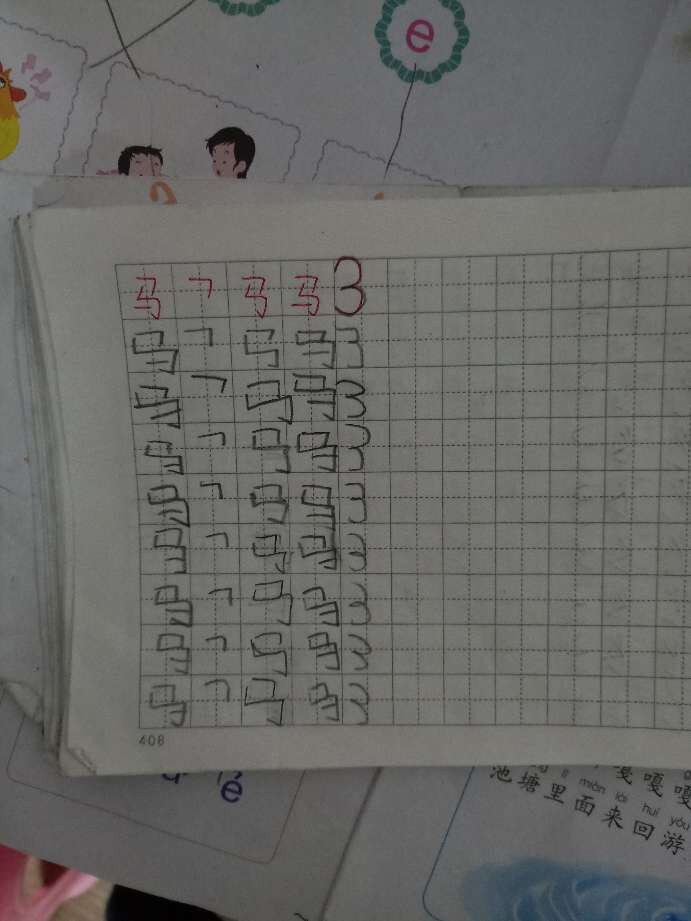 e
马 ㇕ 马 马 3
马 ㇕ 马 马 3
马 ㇕ 马 马 3
马 ㇕ 马 马 3
马 ㇕ 马 马 3
马 ㇕ 马 马 3
马 ㇕ 马 马 3
马 ㇕ 马 马 3
马 ㇕ 马 马 3
408
é
嘎嘎
lǐ miàn lái huí yóu
池塘里面来回游